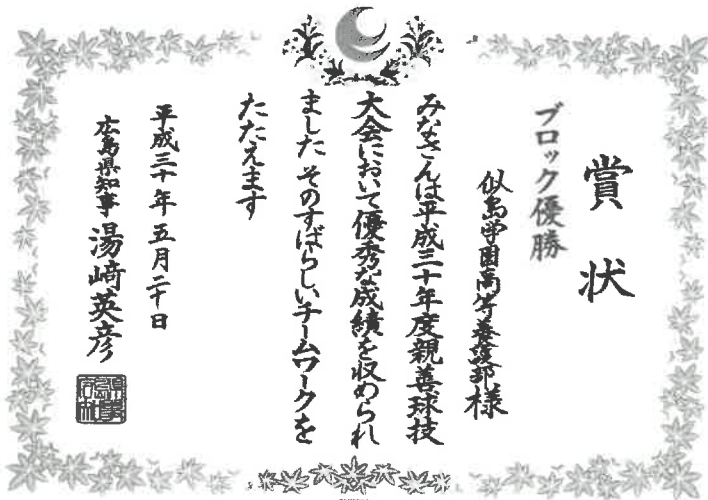 賞状
ブロック優勝
似島学園高等養護部様
みなさんは平成三十年度親善球技
大会において優秀な成績を収められ
ました そのすばらしいチームワークを
たたえます
平成三十年五月二十日
広島県知事 湯﨑英彦